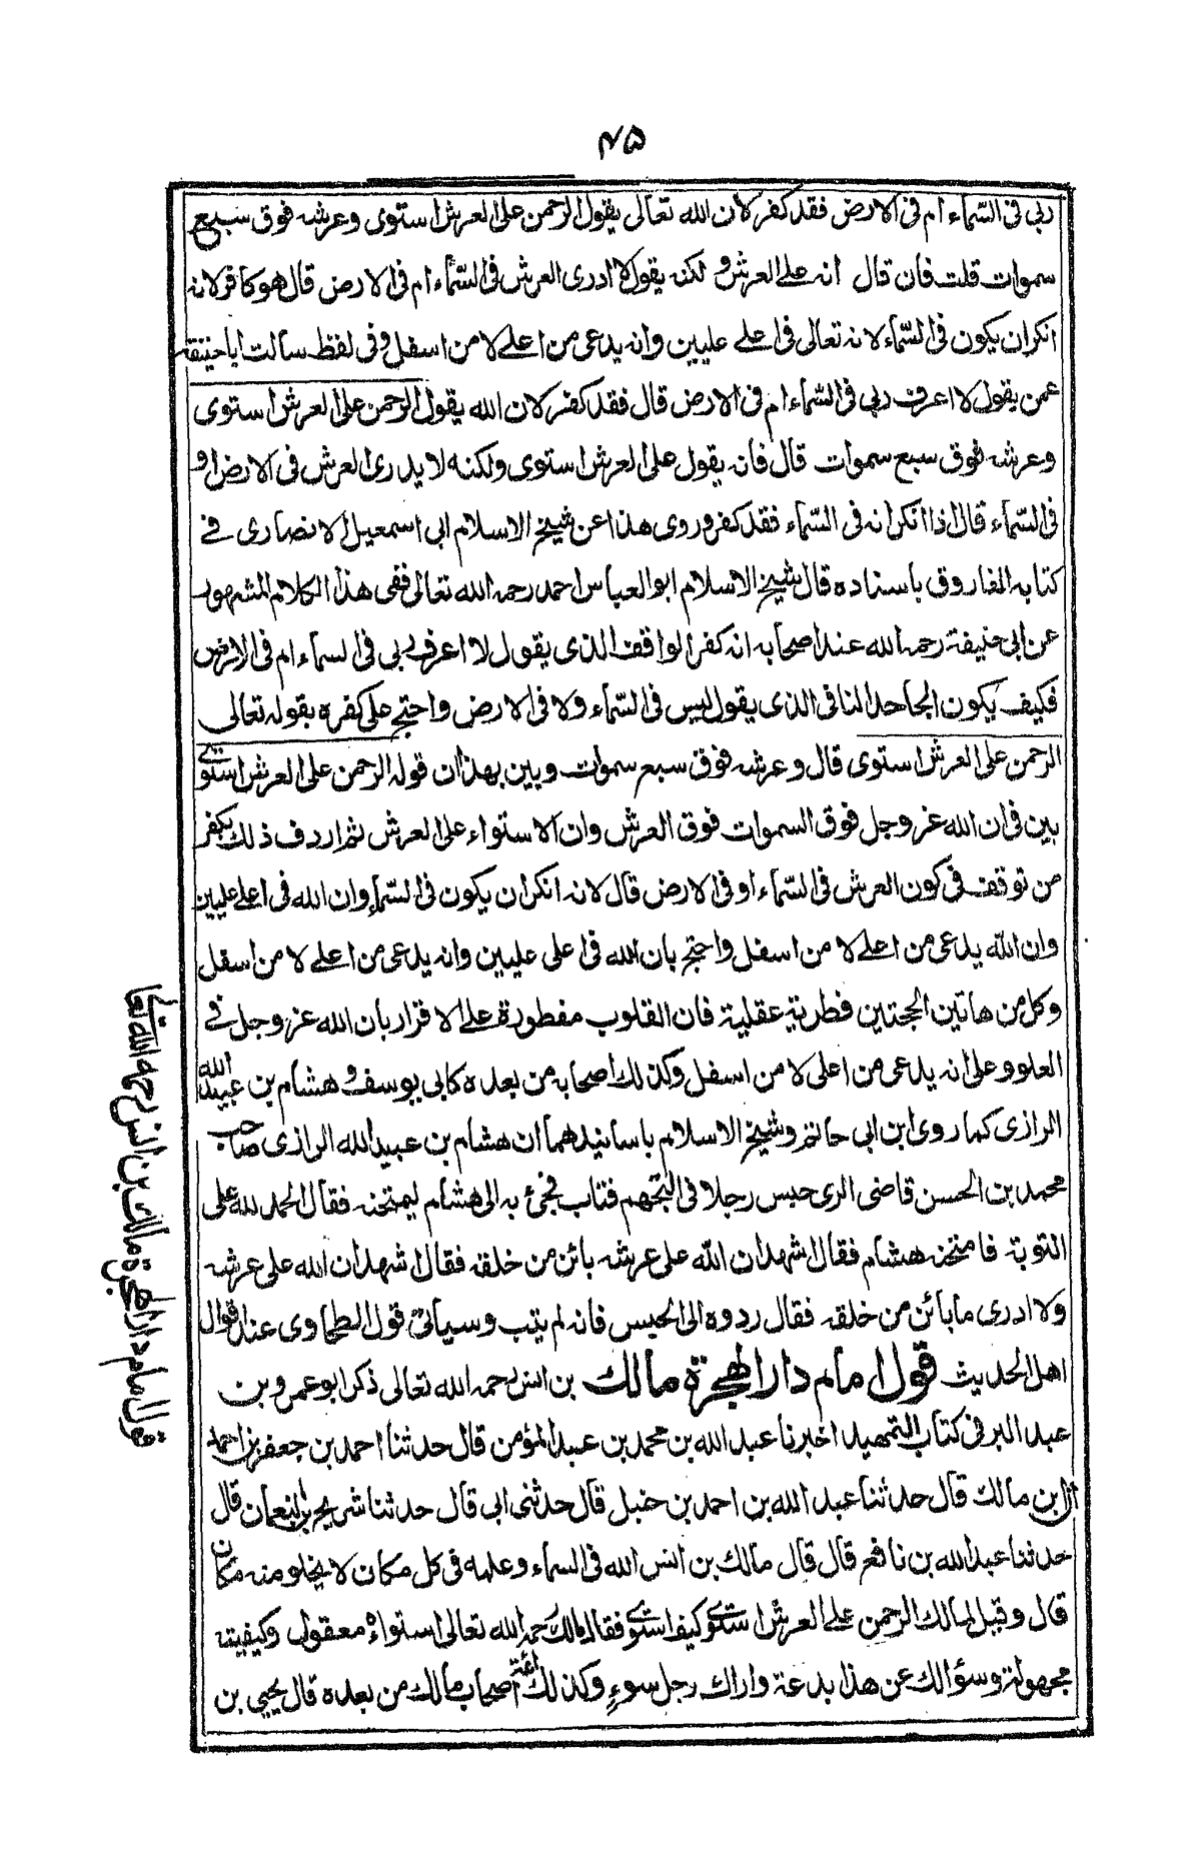 ۷۵
ربى فى السّماء ام فى الارض فقد كفر لان الله تعالى يقول الرحمن على العرش استوى وعرشه فوق سبع
سموات قلت فان قال انه على العرش و لكنه يقول لا ادرى العرش فى السّماء ام فى الارض قال هو كافر لانه
انكر ان يكون فى السّماء لانه تعالى فى اعلے عليين وانه يدعى من اعلے لا من اسفل وفى لفظ سالت اباحنيفة
عمن يقول لا اعرف ربى فى السّماء ام فى الارض قال فقد كفر لان الله يقول الرحمن على العرش استوى
وعرشه فوق سبع سموات قال فانه يقول على العرش استوى ولكنه لا يدرى العرش فى الارض او
فى السّماء قال اذا انكر انه فى السّماء فقد كفر وروى هذا عن شيخ الاسلام ابى اسمعيل الانصارى فے
كتابه الفاروق باسناده قال شيخ الاسلام ابو العباس احمد رحمه الله تعالى ففى هذا الكلام المشهور
عن ابى حنيفة رحمه الله عند اصحابه انه كفر الواقف الذى يقول لا اعرف ربى فى السماء ام فى الارض
فكيف يكون الجاحد النافى الذى يقول ليس فى السّماء ولا فى الارض واحتج على كفره بقوله تعالى
الرحمن على العرش استوى قال وعرشه فوق سبع سموات وبين بهذا ان قوله الرحمن على العرش استوے
بين فى ان الله عز وجل فوق السموات فوق العرش وان الاستواء على العرش ثم اردف ذلك بكفر
من توقف فى كون العرش فى السّماء او فى الارض قال لانه انكر ان يكون فى السّماء وان الله فى اعلے عليين
وان الله يدعى من اعلے لا من اسفل واحتج بان الله فى اعلى عليين وانه يدعى من اعلے لا من اسفل
وكل من هاتين الحجتين فطرية عقلية فان القلوب مفطورة على الاقرار بان الله عز وجل فے
العلو وعلى انه يدعى من اعلى لا من اسفل وكذلك اصحابه من بعده كابى يوسف و هشام بن عبيد الله
الرازى كما روى ابن ابى حاتم وشيخ الاسلام باسانيدهما ان هشام بن عبيد الله الرازى صاحب
محمد بن الحسن قاضى الرى حبس رجلا فى التجهم فتاب فجئ به الى هشام ليمتحنه فقال الحمد لله على
التوبة فامتحنه هشام فقال اشهد ان الله على عرشه بائن من خلقه فقال اشهد ان الله على عرشه
ولا ادرى ما بائن من خلقه فقال ردوه الى الحبس فانه لم يتب وسياتى قول الطحاوى عند اقوال
اهل الحديث قول امام دار الهجرة مالك بن انس رحمه الله تعالى ذكر ابو عمر و بن
عبد البر فى كتاب التمهيد اخبرنا عبد الله بن محمد بن عبد المؤمن قال حدثنا احمد بن جعفر بن احمد
بن مالك قال حدثنا عبد الله بن احمد بن حنبل قال حدثنى ابى قال حدثنا شريح بن النعمان قال
حدثنا عبد الله بن نافع قال قال مالك بن انس الله فى السماء وعلمه فى كل مكان لا يخلو منه مكان
قال وقيل لمالك الرحمن على العرش استوى كيف استوى فقال مالك رحمه الله تعالى استواؤه معقول وكيفيته
مجهولة وسؤالك عن هذا بدعة واراك رجل سوء وكذلك ائمة اصحاب مالك من بعده قال يحيى بن
قول امام دار الهجرة مالك بن انس رحمه الله تعالى